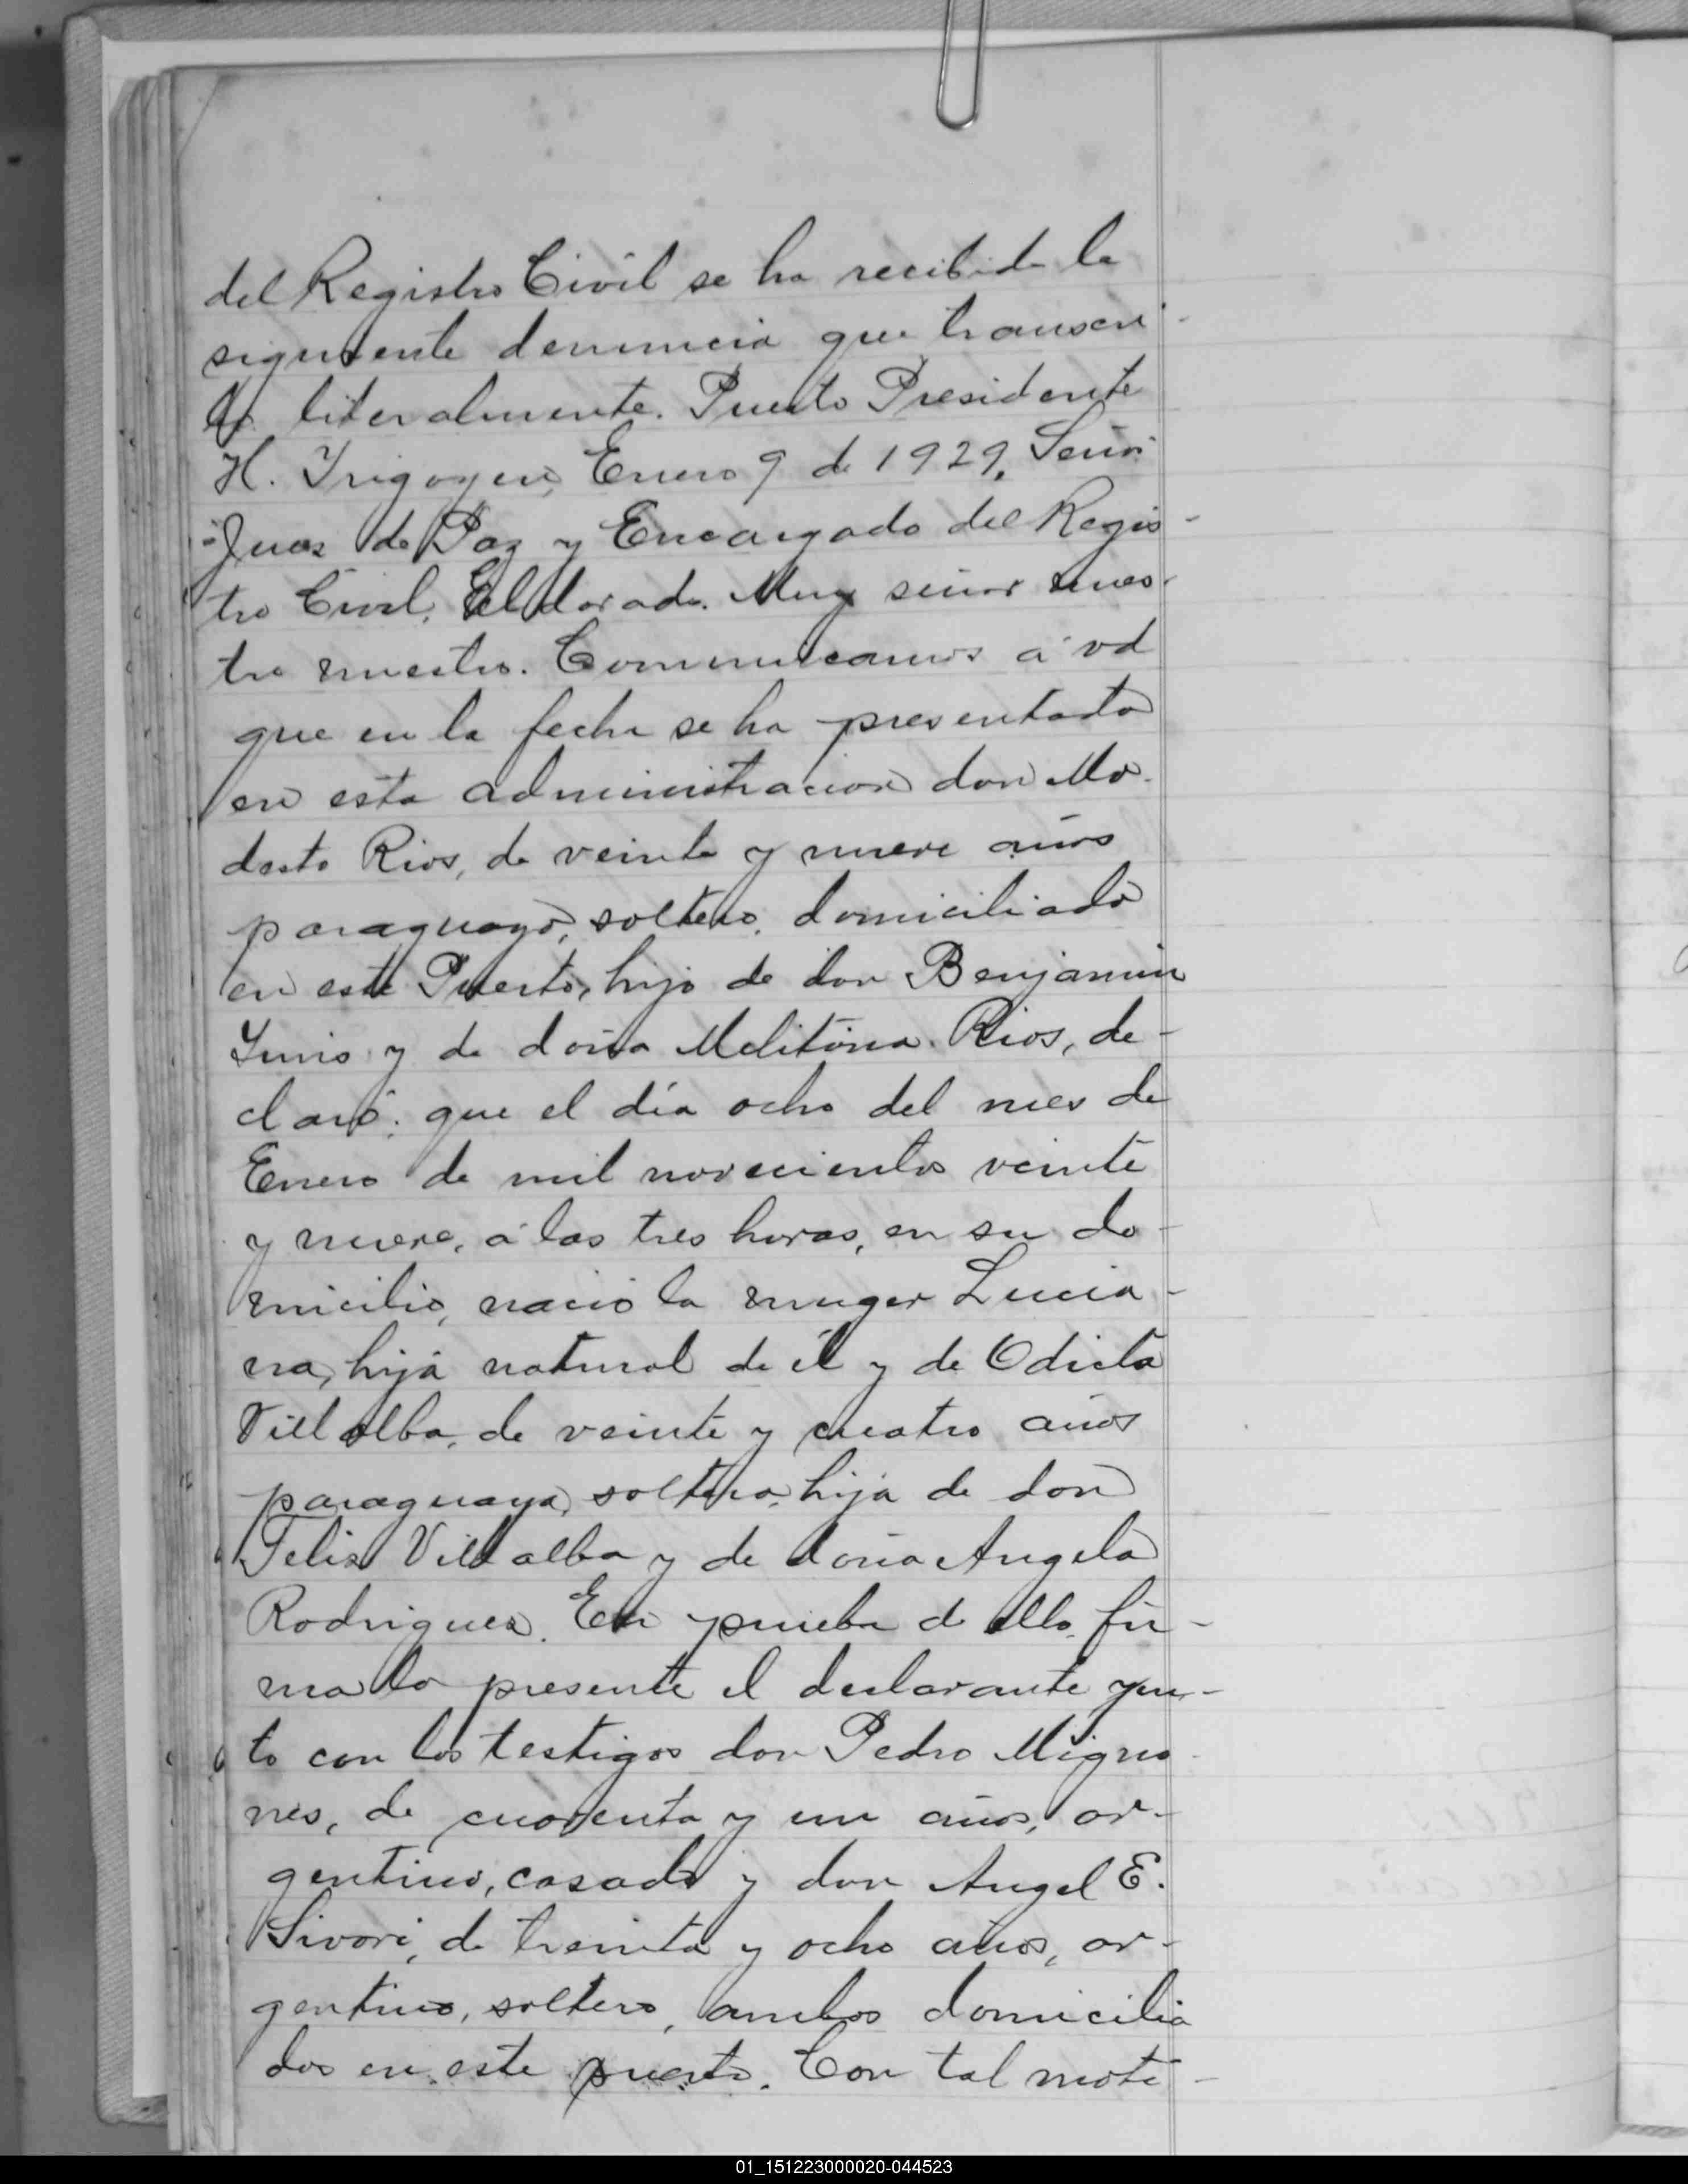 del Registro Civil se ha recibido la
siguiente denuncia que transcri-
bo literalmente. Puerto Presidente
H. Yrigoyen, Enero 9 de 1929. Señor
Juez de Paz y Encargado del Regis-
tro Civil, Eldorado. Muy señor nues-
tro nuestro. Comunicamos á vd
que en la fecha se ha presentado
en esta administracion don Mo-
desto Rios, de veinte y nueve años
paraguayo, soltero, domiciliado
en este Puerto, hijo de don Benjamin
y de doña Melitona Rios, de-
claró: que el día ocho del mes de
Enero de mil novecientos veinte
y nueve, á las tres horas, en su do-
micilio, nació la muger Lucia-
na, hija natural de él y de Odicta
Villalba, de veinte y cuatro años
paraguaya, soltera, hija de don
Felix Villalba y de doña Angela
Rodriguez. En prueba de ello fir-
ma la presente el declarante yun-
to con los testigos don Pedro Migno
nes, de cuarenta y un años, ar-
gentino, casado y don Angel E.
Sivori, de treinta y ocho años, ar-
gentino, soltero, ambos domicilia
dos en este puerto. Con tal moti-
01_151223000020-044523